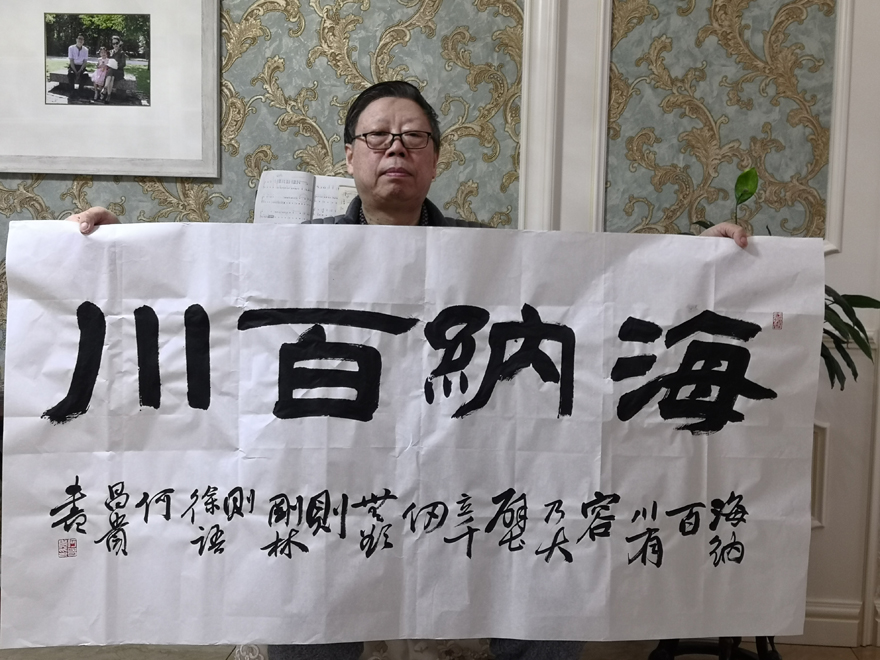 海納百川
海纳
百
川有
容
乃大
壁
立千
仞
無欲
則
剛林
则
徐语
何
昌貴
書